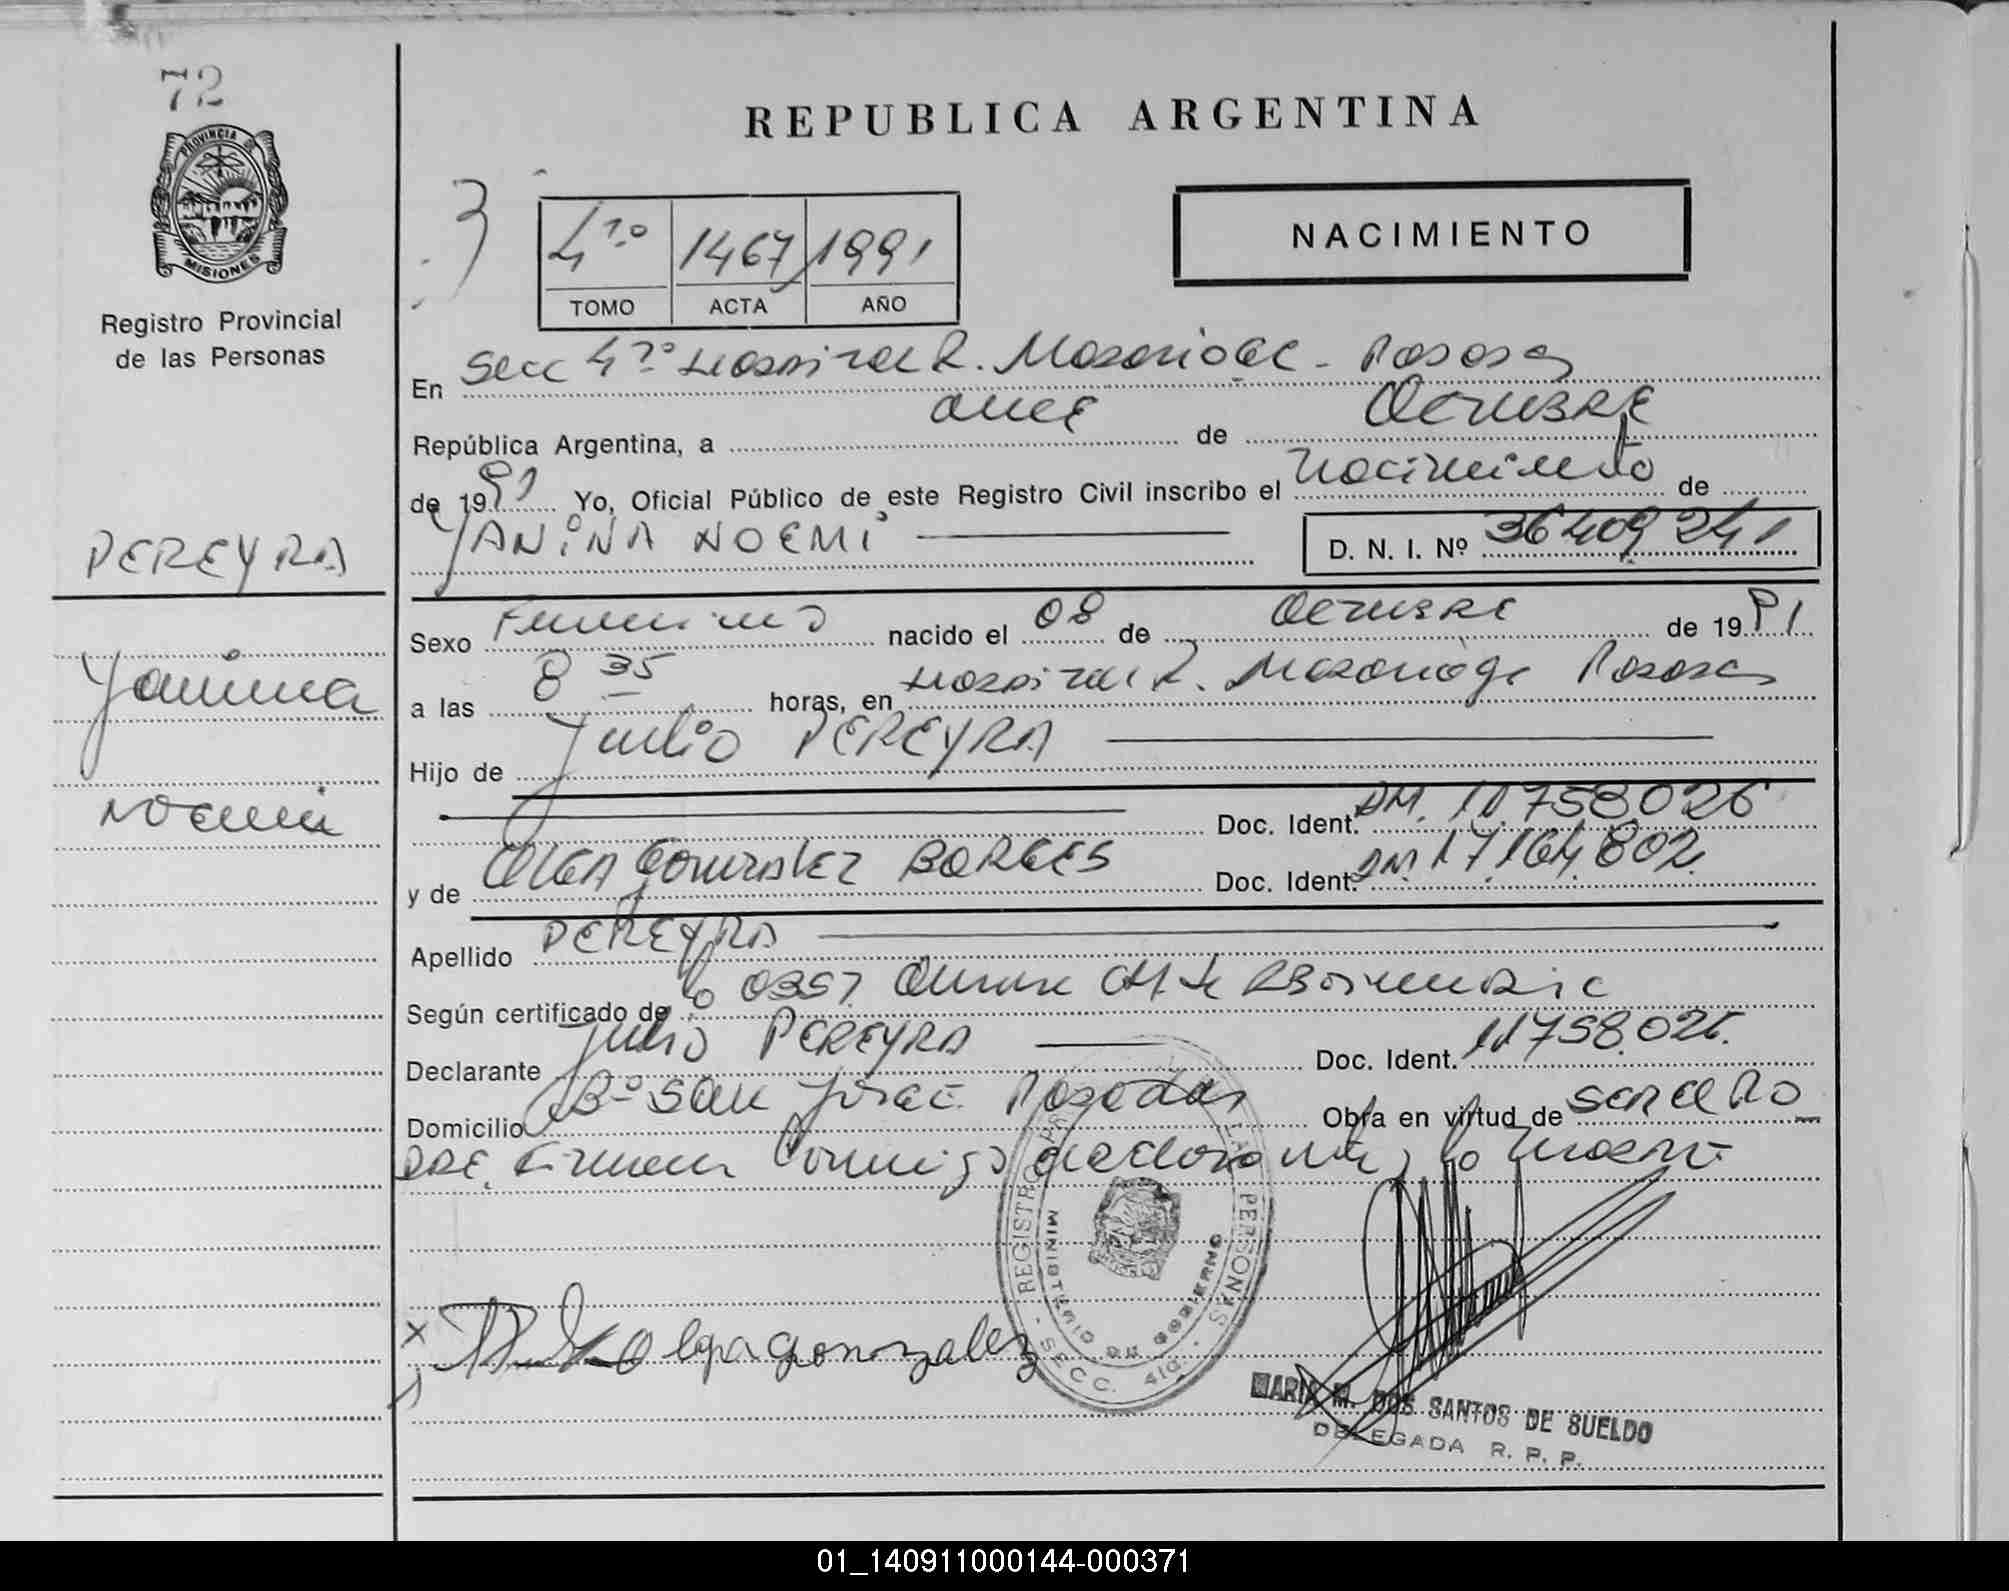 72
PROVINCIA DE
MISIONES
Registro Provincial
de las Personas
REPUBLICA ARGENTINA
NACIMIENTO
4to 1467 1991
TOMO ACTA AÑO
En Secc 4to Hospital R. Madariaga - Posadas
República Argentina, a once de Octubre
de 1991 Yo, Oficial Público de este Registro Civil inscribo el nacimiento de
YANINA NOEMI D. N. I. Nº 36409241
PEREYRA
Sexo Femenino nacido el 08 de Octubre de 1991
Yanina
a las 8 35 horas, en Hospital R. Madariaga Posadas
Hijo de Julio PEREYRA
Noemi
Doc. Ident. DM. 11.758.026
y de OLGA Gonzalez BORGES Doc. Ident. DM. 17.164.802
Apellido PEREYRA
Según certificado de
Declarante Julio PEREYRA Doc. Ident. 11.758.026.
Domicilio Bº San Jorge. Posadas Obra en virtud de ser el pa
dre. Firman Conmigo declarante y la madre
REGISTRO LAS PERSONAS - SECC. 4ta. -
MINISTERIO DE GOBIERNO
x olga gonzalez
MARIA M. DOS SANTOS DE SUELDO
DELEGADA R. P. P.
01_140911000144-000371